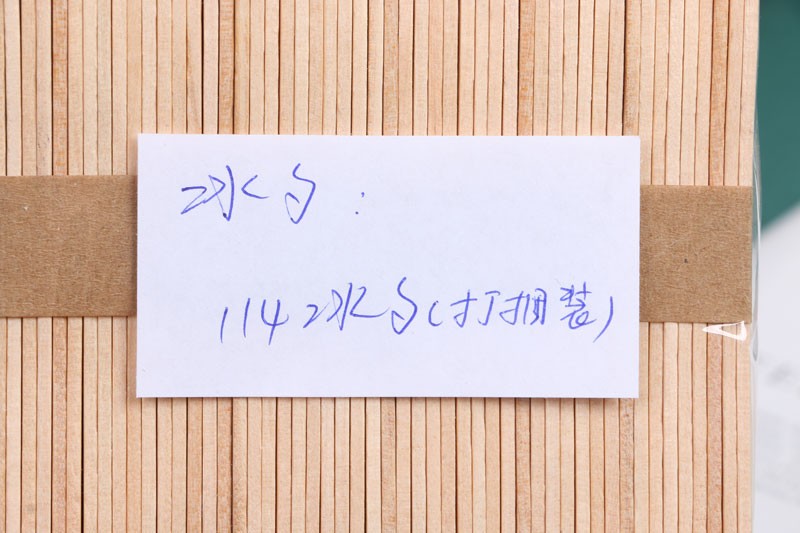 冰勺：
114冰勺(打捆装)